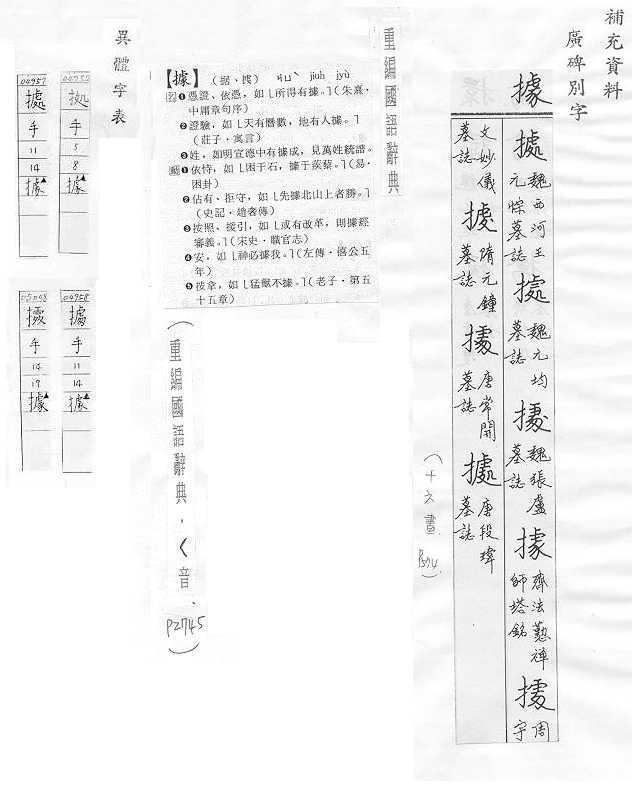 補充資料
廣碑別字
據
攄魏西河王
元悰墓誌
魏元均
墓誌
魏張盧
墓誌
齊法懃禪
師塔銘
周宇
文妙儀
墓誌
隋元鐘
墓誌
唐常開
墓誌
唐段瑋
墓誌
(十六畫 P374.)
重編國語辭典
【據】(据、㨿) ㄐㄩˋ jiuh jyù
名❶憑證、依憑,如「所得有據。」(朱熹・
中庸章句序)
❷證驗,如「天有曆數,地有人據。」
(莊子・寓言)
❸姓,如明宣德中有據成,見萬姓統譜。
動❶依恃,如「困于石,據于蒺藜。」(易・
困卦)
❷佔有、拒守,如「先據北山上者勝。」
(史記・趙奢傳)
❸按照、援引,如「或有改革,則據經
審義。」(宋史・職官志)
❹安,如「神必據我。」(左傳・僖公五
年)
❺按拿,如「猛獸不據。」(老子・第五
十五章)
(重編國語辭典・ㄑ音、P2745)
異體字表
手
5
8
據▲
04957
手
11
14
據▲
04958
手
11
14
據▲
手
14
17
據▲